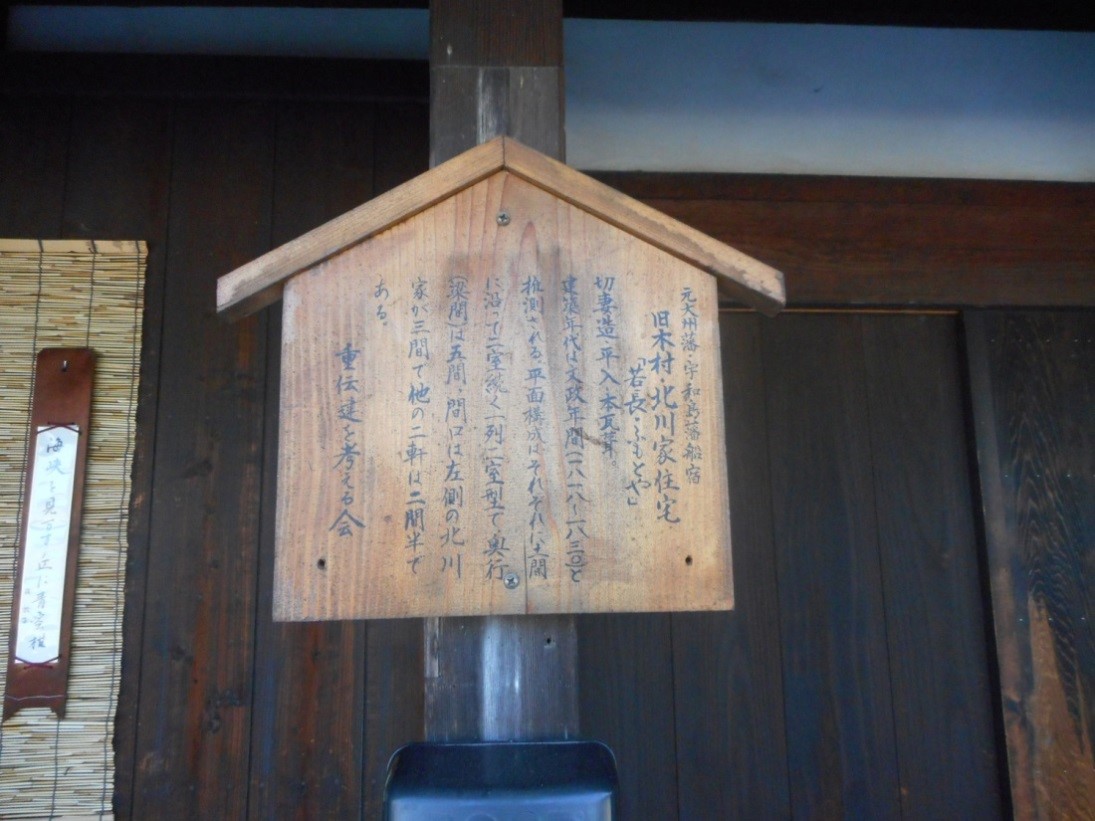 元大州藩・宇和島藩船宿
旧木村・北川家住宅
「若長・ふもとや」
切妻造 平入・本瓦葺。
建築年代は文政年間(一八一八～一八三〇)と
推測される。平面構成はそれぞれに土間
に沿って二室続く一列二室型で、奥行
(梁間)は五間、間口は左側の北川
家が三間で他の二軒は二間半で
ある。
重伝建を考える会
海峡を見